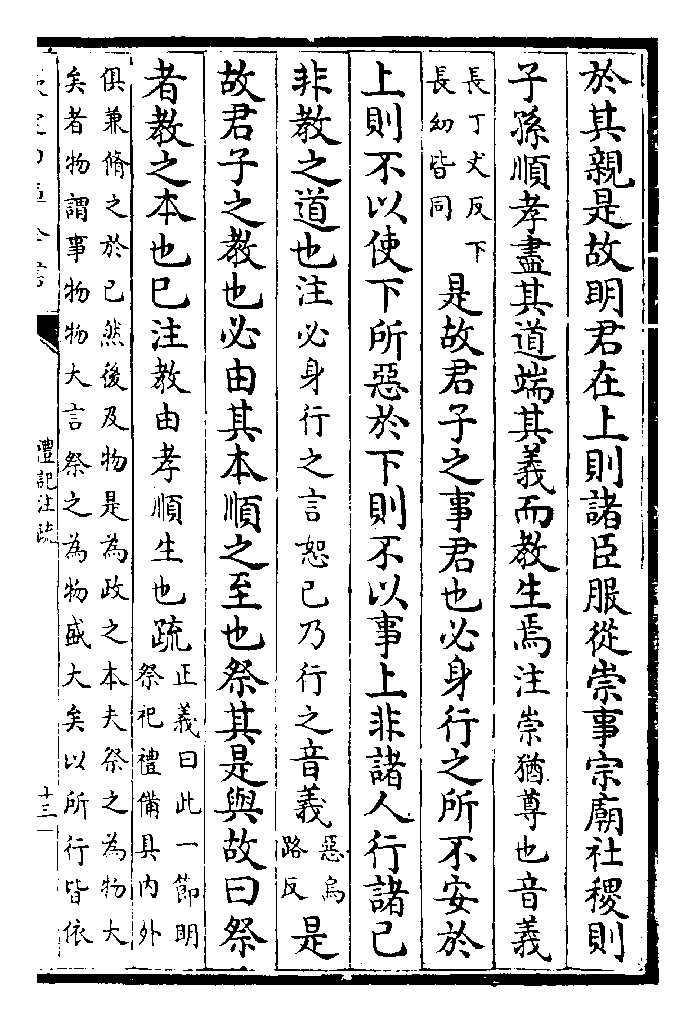 於其親是故明君在上則諸臣服從崇事宗廟社稷則
子孫順孝盡其道端其義而教生焉注崇猶尊也音義
長丁丈反下
長幼皆同
是故君子之事君也必身行之所不安於
上則不以使下所惡於下則不以事上非諸人行諸己
非教之道也注必身行之言恕己乃行之音義
惡烏
路反
是
故君子之教也必由其本順之至也祭其是與故曰祭
者教之本也已注教由孝順生也疏
正義曰此一節明
祭祀禮備具内外
俱兼脩之於己然後及物是為政之本夫祭之為物大
矣者物謂事物物大言祭之為物盛大矣以所行皆依
禮記注疏
十三